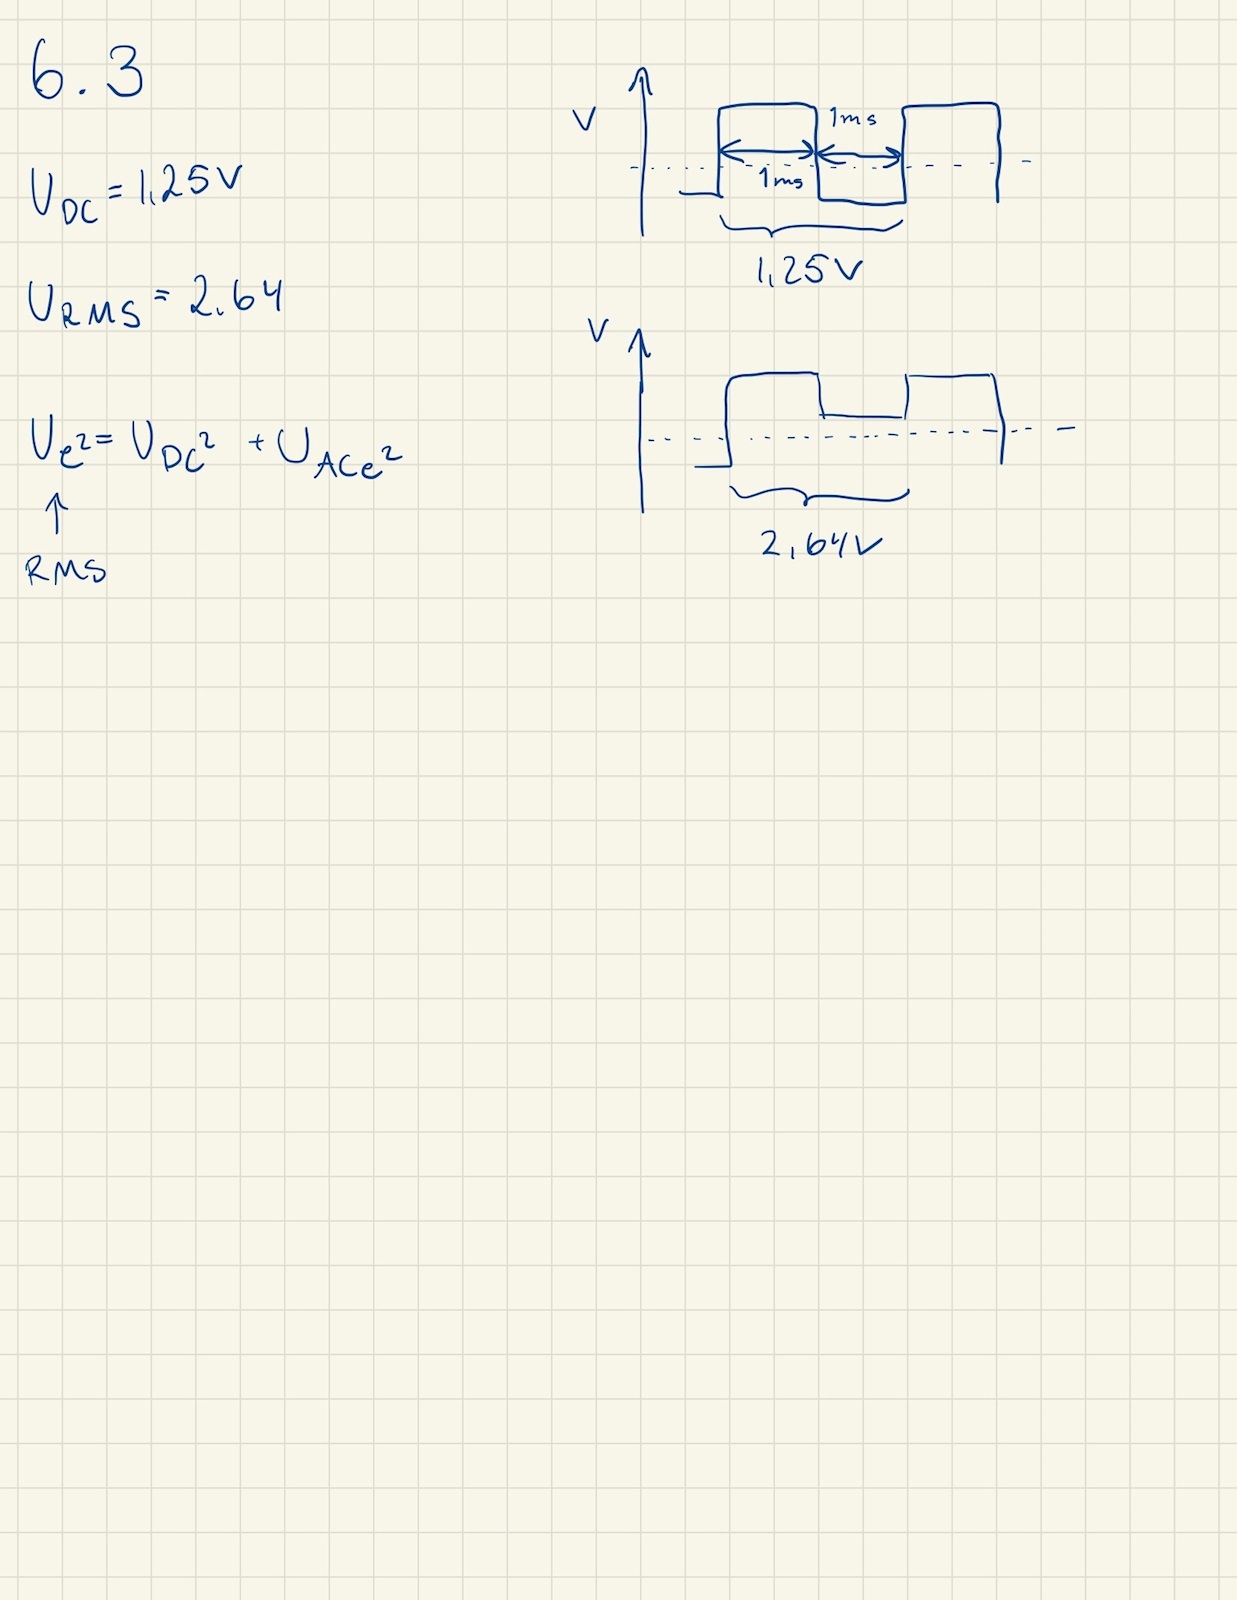 6.3
U_DC = 1,25V
U_RMS = 2.64
U_e² = U_DC² + U_ACe²
↑
RMS
V
1ms
1ms
1,25V
V
2.64V